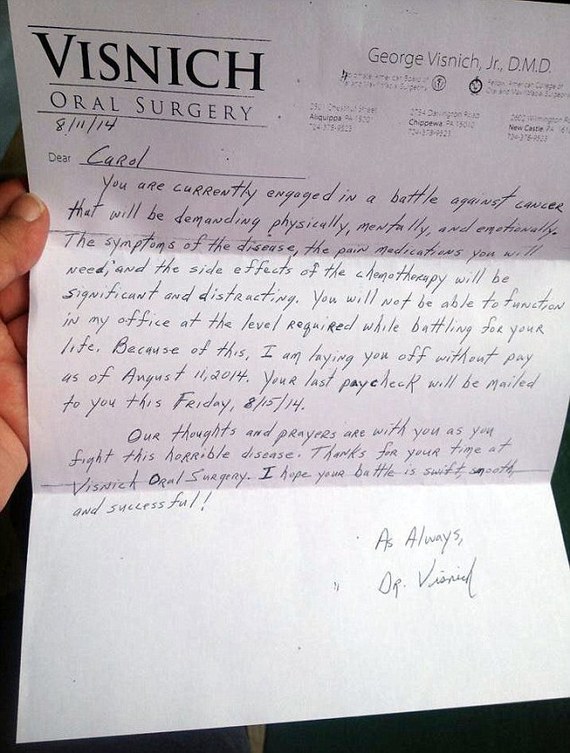 VISNICH
ORAL SURGERY
George Visnich, Jr., D.M.D.
Aliquippa PA 15001
724-378-9523
Chippewa PA 15010
724-378-9523
New Castle PA
724-378-9523
8/11/14
Dear Carol
You are currently engaged in a battle against cancer
that will be demanding physically, mentally, and emotionally.
The symptoms of the disease, the pain medications you will
need, and the side effects of the chemotherapy will be
significant and distracting. You will not be able to function
in my office at the level required while battling for your
life. Because of this, I am laying you off without pay
as of August 11, 2014. Your last paycheck will be mailed
to you this Friday, 8/15/14.
Our thoughts and prayers are with you as you
fight this horrible disease. Thanks for your time at
Visnich Oral Surgery. I hope your battle is swift, smooth,
and successful!
As Always,
Dr. Visnich